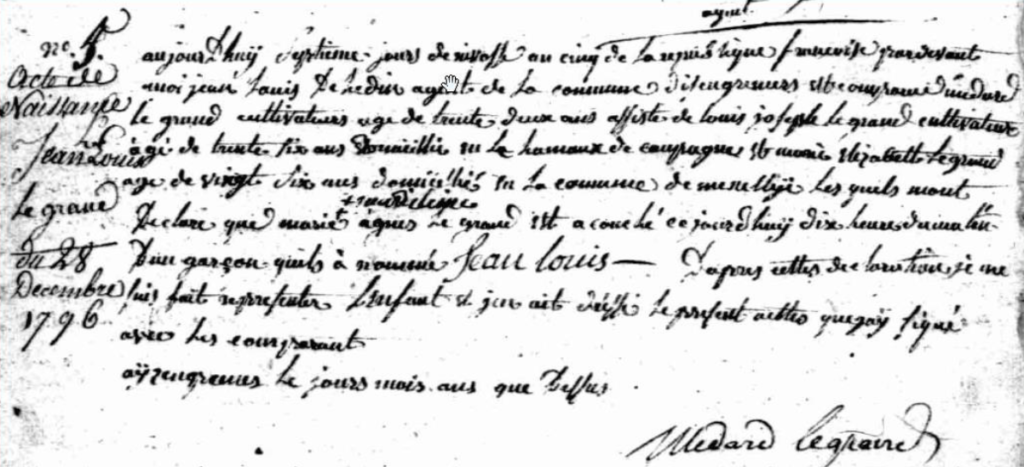 nº. 5.
acte de
Naissance
Jean Louis
le grand
du 28
Decembre
1796
aujourDhuy septieme jours de nivosse an cinq de la republique francoise pardevant
moi jean Louis De hedin agent de La commune disengremers est comparue médard
le grand cultivateurs age de trente deux ans assiste de louis joseph le grand cultivateur
âgé de trente six ans domicillié en le hamaux de campagne et marie elizabett Legrand
age de vingt six ans domicillié en La commune de les quils mont
Declare que marie âgnes Le grand est acouché ce jourdhuy dix heure du matin
D'un garçon quils à nommé Jean louis — D'apres cettes declaration je me
suis fait representer L'enfant et jen ait dressé le present actes que jay signé
avec Les comparant
Le jours mois ans que Dessus
Medard legrand